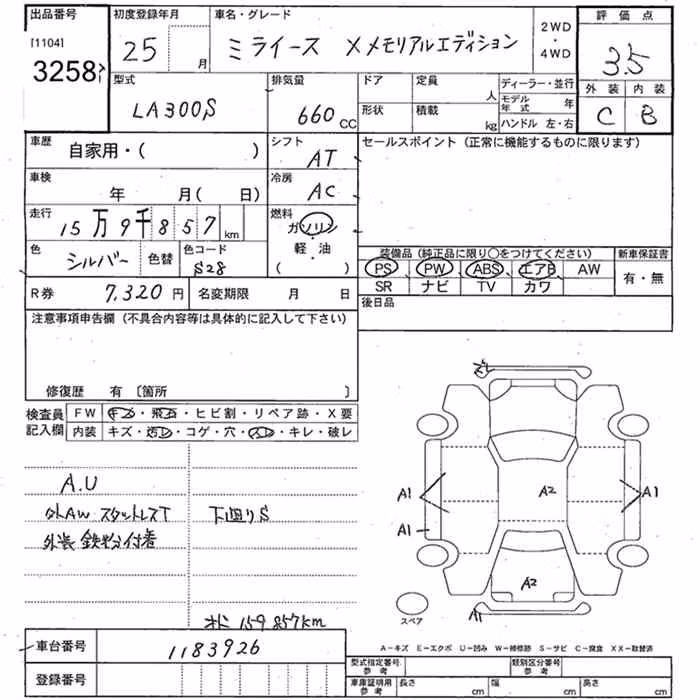 出品番号
[1104]
3258
初度登録年月
25 月
車名・グレード
ミライース Xメモリアルエディション
2WD・4WD
評価点
3.5
外装 内装
C B
型式
LA300S
排気量
660 CC
ドア
形状
定員 人
積載 kg
ディーラー・並行
モデル年式 年
ハンドル 左・右
車歴
自家用・( )
シフト
AT
セールスポイント (正常に機能するものに限ります)
車検
年 月( 日)
冷房
AC
走行
15万9千857km
燃料
ガソリン・軽油
( )
色
シルバー
色替
色コード
S28
装備品 (純正品に限り○をつけてください)
新車保証書
PS PW ABS エアB AW
SR ナビ TV カワ
有・無
R券 7,320円
名変期限 月 日
後日品
注意事項申告欄 (不具合内容等は具体的に記入して下さい)
修復歴 有 〔箇所 〕
検査員記入欄
FW キズ・飛石・ヒビ割・リペア跡・X要
内装 キズ・汚レ・コゲ・穴・スレ・キレ・破レ
A.U
外AW スタットレスT
下廻りS
外装 鉄粉付着
オド 159857km
A1
A1
A2
A1
A2
A1
スペア
A-キズ E-エクボ U-凹み W-補修跡 S-サビ C-腐食 XX-取替済
車台番号
1183926
登録番号
型式指定番号 参考
類別区分番号 参考
車庫証明用 参考
長さ cm
幅 cm
高さ cm